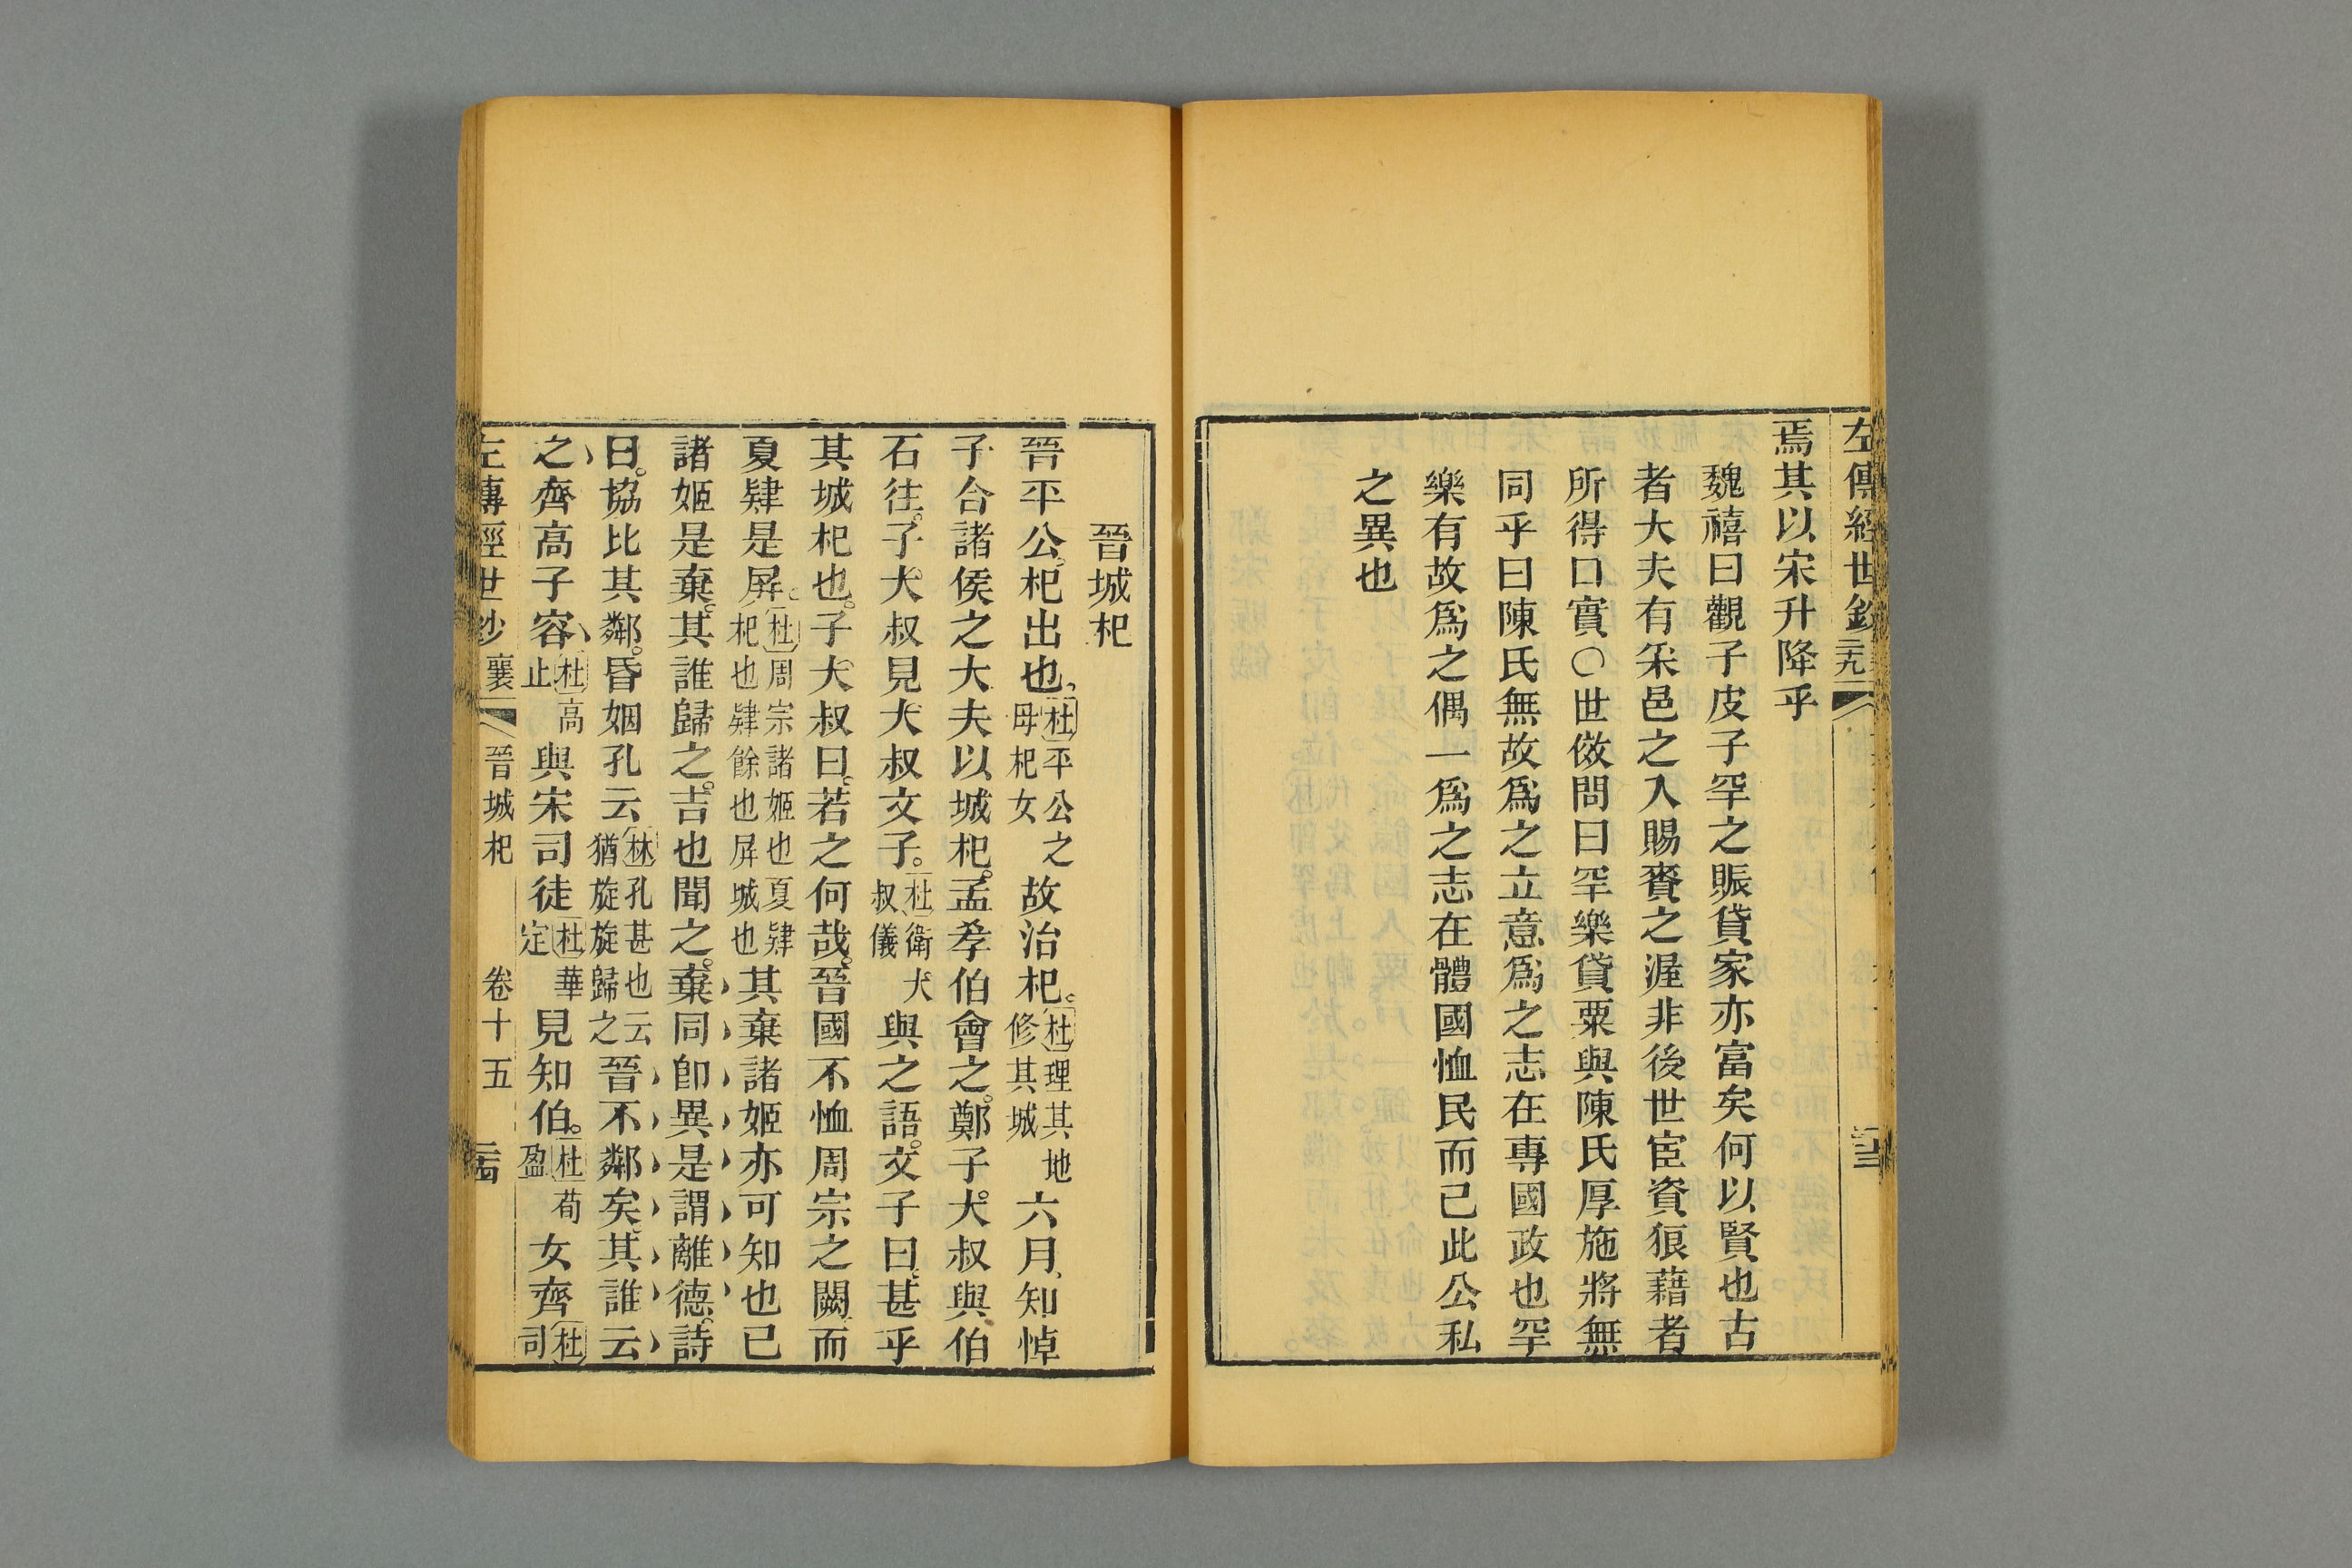 左傳經世鈔
焉其以宋升降乎
魏禧曰觀子皮子罕之賑貸家亦富矣何以賢也古
者大夫有采邑之入賜賚之渥非後世宦資狼藉者
所得口實〇世傚問曰罕樂貸粟與陳氏厚施將無
同乎曰陳氏無故爲之立意爲之志在專國政也罕
樂有故爲之偶一爲之志在體國恤民而已此公私
之異也
晉城杞
晉平公。杞出也，杜平公之母杞女故治杞。杜理其地修其城六月、知悼
子合諸侯之大夫以城杞。孟孝伯會之。鄭子大。叔與伯
石往。子大叔見大叔文子。杜衛大叔儀與之語。文子曰。甚乎
其城杞也。子大叔曰。若之何哉。晉國不恤周宗之闕而
夏肄是屏。杜周宗諸姬也夏肄杞也肄餘也屏城也其棄諸姬亦可知也已
諸姬是棄。其誰歸之。吉也聞之。棄同卽異是謂離德。詩
曰。協比其鄰。昏姻孔云林孔甚也云猶旋旋歸之晉不鄰矣。其誰云
之齊高子容杜高止與宋司徒杜華定見知伯。杜荀盈女齊杜司
左傳經世鈔 襄 晉城杞 卷十五 二十四